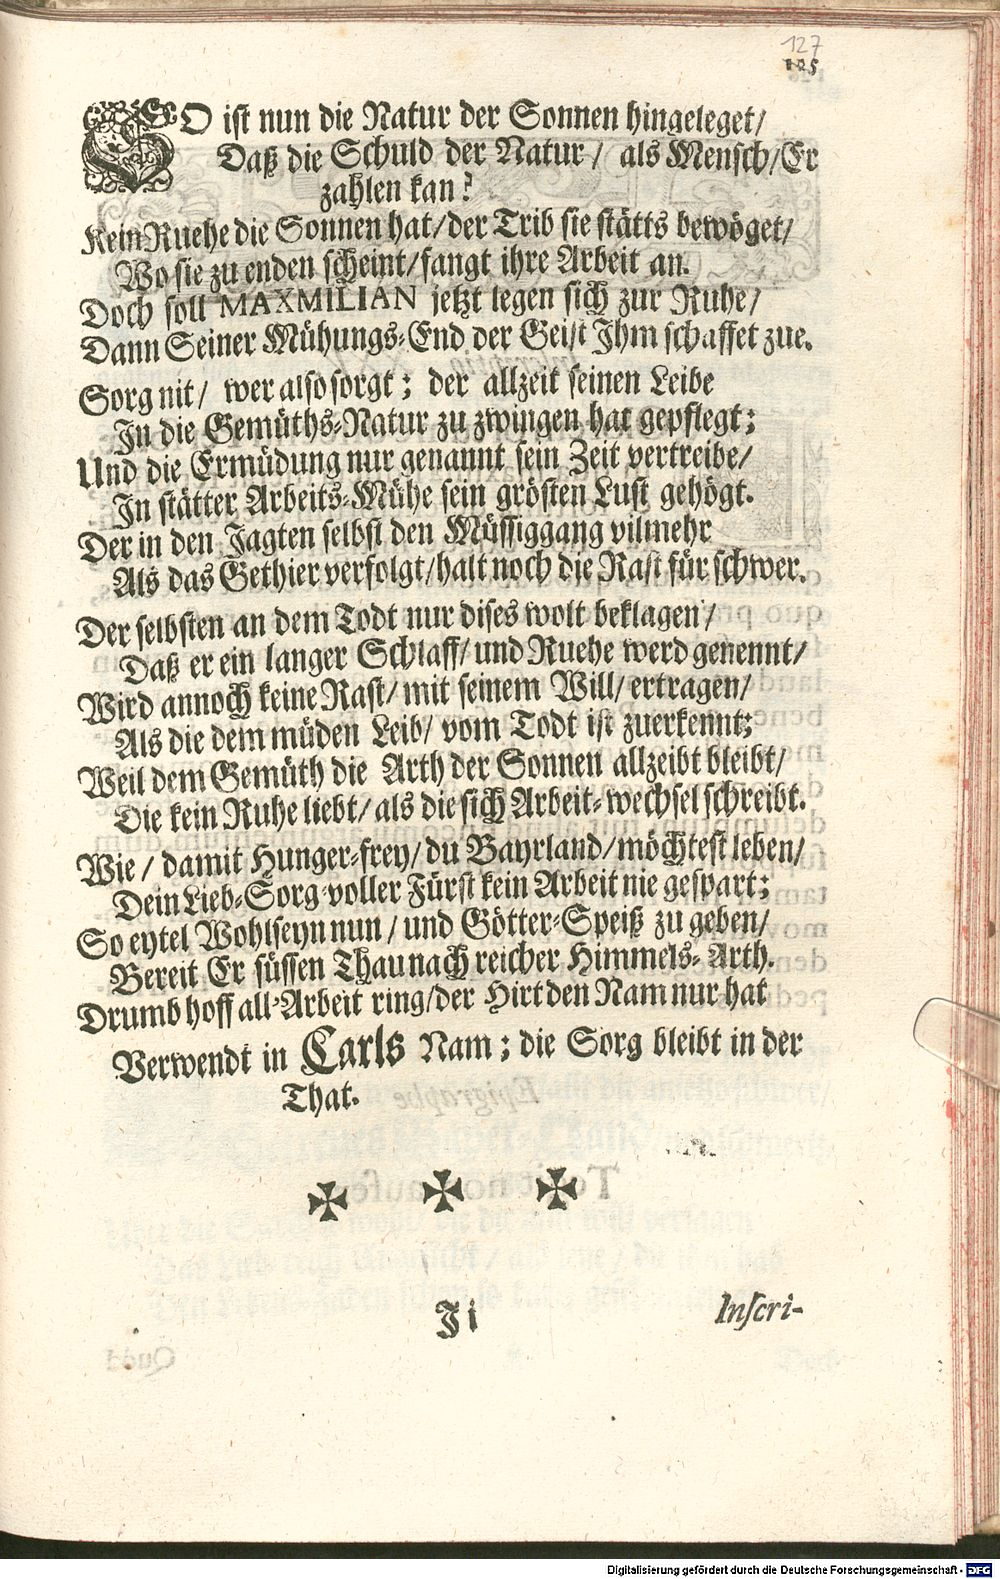 127
125
SO ist nun die Natur der Sonnen hingeleget/
Daß die Schuld der Natur / als Mensch/Er
zahlen kan?
Kein Ruehe die Sonnen hat/der Trib sie stätts bewöget/
Wo sie zu enden scheint/fangt ihre Arbeit an.
Doch soll MAXMILIAN jetzt legen sich zur Ruhe/
Dann Seiner Mühungs-End der Geist Ihm schaffet zue.
Sorg nit/ wer also sorgt; der allzeit seinen Leibe
In die Gemüths-Natur zu zwingen hat gepflegt;
Und die Ermüdung nur genannt sein Zeit vertreibe/
In stätter Arbeits-Mühe sein grösten Lust gehögt.
Der in den Jagten selbst den Müssiggang vilmehr
Als das Gethier verfolgt/halt noch die Rast für schwer.
Der selbsten an dem Todt nur dises wolt beklagen/
Daß er ein langer Schlaff/und Ruehe werd genennt/
Wird annoch keine Rast/ mit seinem Will/ ertragen/
Als die dem müden Leib/ vom Todt ist zuerkennt;
Weil dem Gemüth die Arth der Sonnen allzeibt bleibt/
Die kein Ruhe liebt/ als die sich Arbeit-wechsel schreibt.
Wie / damit Hunger-frey/ du Bayrland/möchtest leben/
Dein Lieb-Sorg-voller Fürst kein Arbeit nie gespart;
So eytel Wohlseyn nun / und Götter-Speiß zu geben/
Bereit Er süssen Thau nach reicher Himmels-Arth.
Drumb hoff all-Arbeit ring/der Hirt den Nam nur hat
Verwendt in Carls Nam; die Sorg bleibt in der
That.
Ii
Inscri-
Digitalisierung gefördert durch die Deutsche Forschungsgemeinschaft - DFG